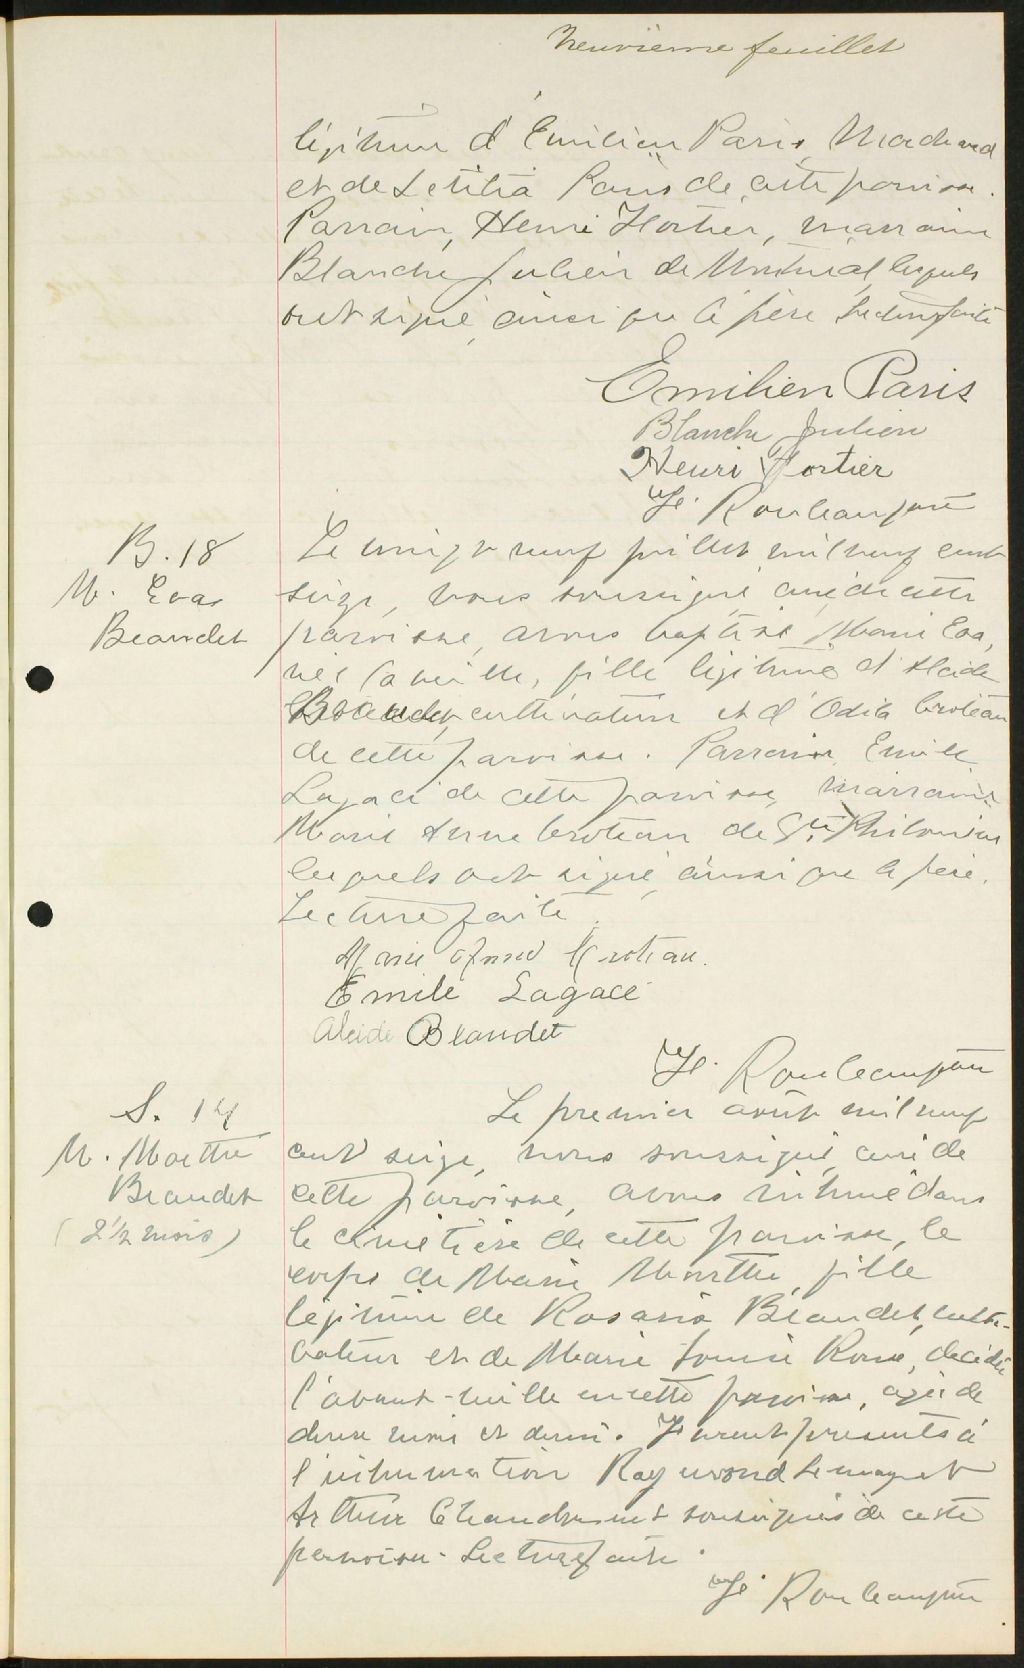 Neuvième feuillet
légitime d'Emilien Paris, Marchand
et de Létitia Paris de cette paroisse.
Parrain, Henri Hortier, marraine
Blanche Julien de Montréal lesquels
ont signé ainsi que le père Lecture faite
Emilien Paris
Blanche Julien
Henri Hortier
Rouleau ptre
B. 18
M. Eva
Beaudet
Le vingt neuf juillet mil neuf cent
seize, nous soussigné, curé de cette
paroisse, avons baptisé Marie Eva,
née la veille, fille légitime d'Alcide
Beaudet, cultivateur et d'Odila Croteau
de cette paroisse. Parrain, Emile
Lagacé de cette paroisse, marraine
Marie Anne Croteau de Ste Philomène
lesquels ont signé, ainsi que le père.
Lecture faite.
Marie Anne Croteau.
Emile Lagacé
Alcide Beaudet
Rouleau ptre
S. 14
M. Marthe
Beaudet
(2 1/2 mois)
Le premier août mil neuf
cent seize, nous soussigné, curé de
cette paroisse, avons inhumé dans
le cimetière de cette paroisse, le
corps de Marie Marthe, fille
légitime de Rosario Beaudet, culti-
vateur et de Marie Louise, décédée
l'avant-veille en cette paroisse, âgée de
deux mois et demi. Furent présents à
l'inhumation Raymond Lemay et
Arthur soussignés de cette
paroisse. Lecture faite.
Rouleau ptre